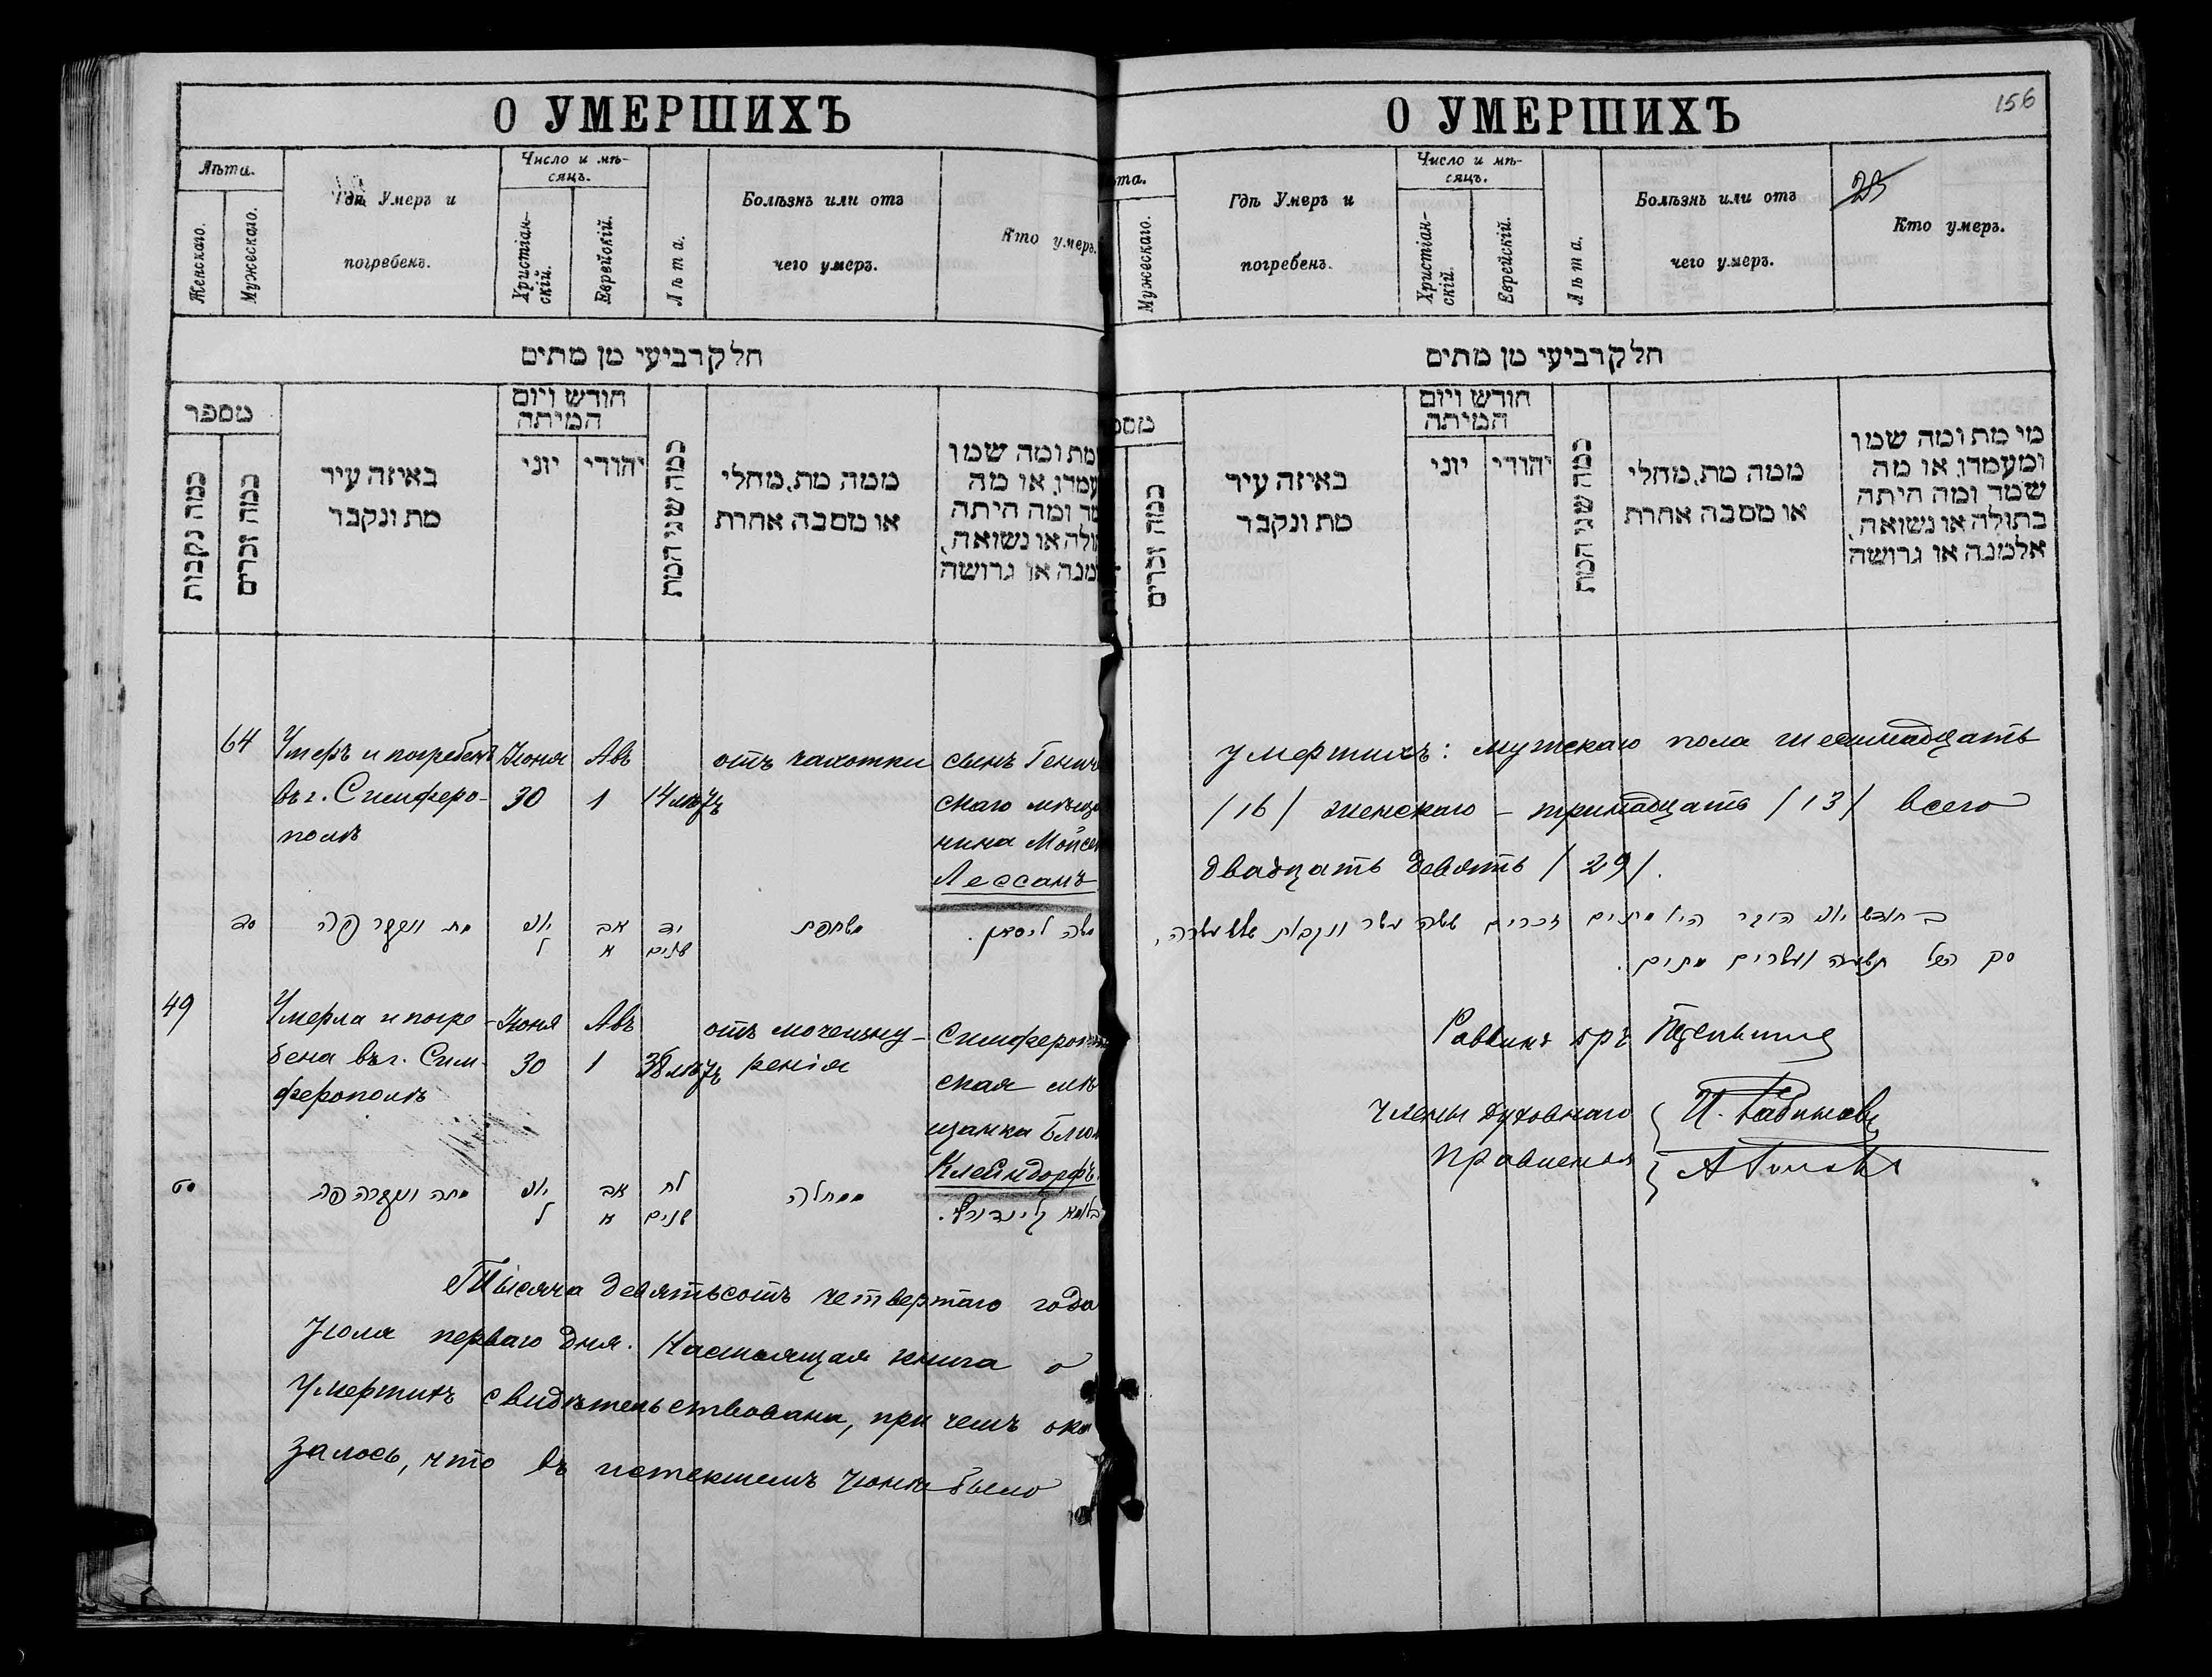 О УМЕРШИХЪ
Лѣта.
Женскаго.
Мужескаго.
Гдѣ Умеръ и
погребенъ.
Число и мѣ-
сяцъ.
Христіан-
скій.
Еврейскій.
Лѣта.
Болѣзнь или отъ
чего умеръ.
Кто умеръ.
חלק רביעי מן מתים
מספר
כמה נקבות
כמה זכרים
באיזה עיר
מת ונקבר
חודש ויום
המיתה
יוני
יהודי
כמה שני המת
ממה מת, מחלי
או מסבה אחרת
מת ומה שמו
עמדו, או מה
מד ומה היתה
ולה או נשואה,
מנה או גרושה
64
Умеръ и погребенъ
въ г. Симферо-
полѣ
Іюня
30
Авъ
1
14 лѣтъ
отъ чахотки
сынъ Генич
скаго мѣща
нина Мойсе
Лессанъ
סד
מת ונקבר פה
יוני
ל
אב
א
יד
שנים
משחפת
משה ליסאן.
49
Умерла и погре-
бена въ г. Сим-
ферополѣ
Іюня
30
Авъ
1
38 лѣтъ
отъ мочеизну-
ренія
Симферополь
ская мѣ
щанка Блюм
Клейндорфъ
מט
מתה ונקברה פה
יוני
ל
אב
א
לח
שנים
ממחלה
בלומא קליינדורף.
Тысяча девятьсотъ четвертаго года
Іюля перваго дня. Настоящая книга о
умершихъ свидѣтельствована, при чемъ ока
залось, что въ истекшемъ Іюнѣ было
О УМЕРШИХЪ
156
та.
Мужескаго.
Гдѣ Умеръ и
погребенъ.
Число и мѣ-
сяцъ.
Христіан-
скій.
Еврейскій.
Лѣта.
Болѣзнь или отъ
чего умеръ.
Кто умеръ.
חלק רביעי מן מתים
מספ
כמה זכרים
באיזה עיר
מת ונקבר
חודש ויום
המיתה
יוני
יהודי
כמה שני המת
ממה מת, מחלי
או מסבה אחרת
מי מת ומה שמו
ומעמדו, או מה
שמד ומה היתה
בתולה או נשואה,
אלמנה או גרושה
умершихъ: мужскаго пола шестнадцать
/16/ женскаго – тринадцать /13/ всего
двадцать девять /29/.
בחודש יוני היו מתים זכרים ששה עשר ונקבות שלש עשרה,
סך הכל תשעה ועשרים מתים.
Раввинъ
Члены духовнаго
Правленія